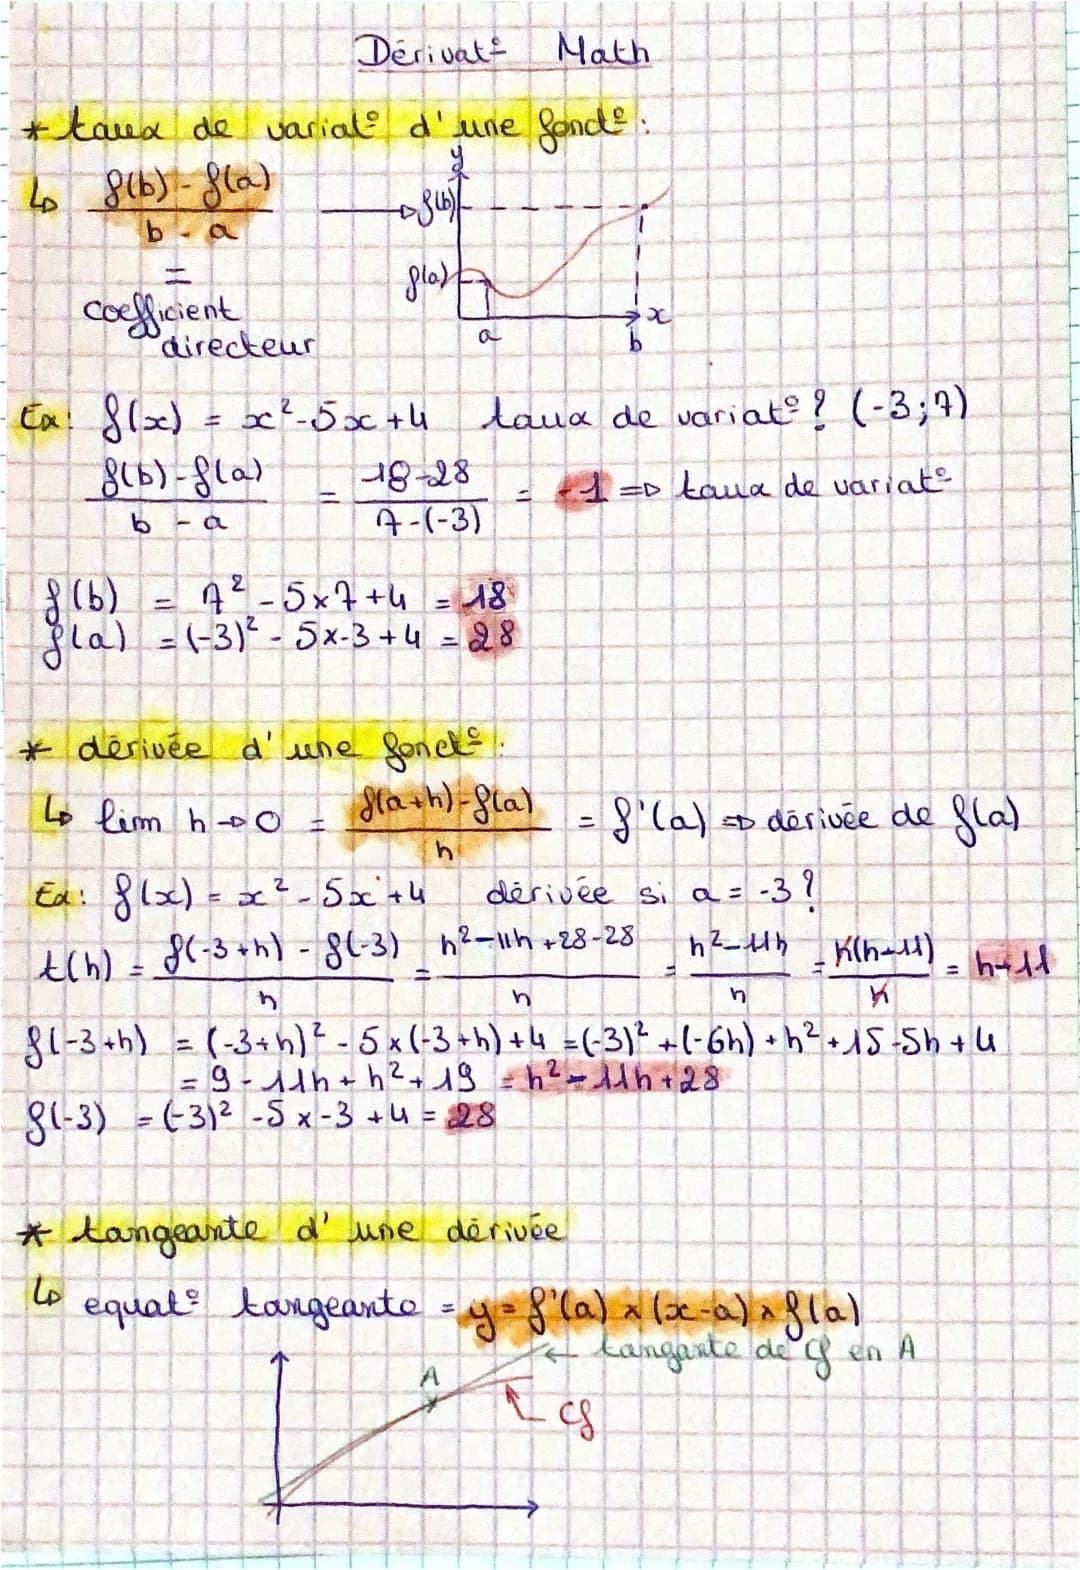 Dérivat° Math
* taux de variat° d'une fonct° :
↳ f(b) - f(a)
b - a
=
coefficient
directeur
y
f(b)
f(a)
a
b
x
Ex: f(x) = x² - 5x + 4 taux de variat° ? (-3;7)
f(b) - f(a) / b - a = 18-28 / 7-(-3) = -1 => taux de variat°
f(b) = 7² - 5x7 + 4 = 18
f(a) = (-3)² - 5x-3 + 4 = 28
* dérivée d'une fonct° :
↳ lim h→0 = f(a+h)-f(a) / h = f'(a) => dérivée de f(a)
Ex: f(x) = x² - 5x + 4 dérivée si a = -3 ?
t(h) = f(-3+h) - f(-3) / h = h²-11h+28-28 / h = h²-11h / h = h(h-11) / h = h-11
f(-3+h) = (-3+h)² - 5x(-3+h)+4 = (-3)² + (-6h) + h² + 15 - 5h + 4
= 9 - 11h + h² + 19 = h² - 11h + 28
f(-3) = (-3)² - 5 x -3 + 4 = 28
* tangeante d'une dérivée
↳ equat° tangeante = y = f'(a) x (x-a) x f(a)
← tangante de Cf en A
A
Cf